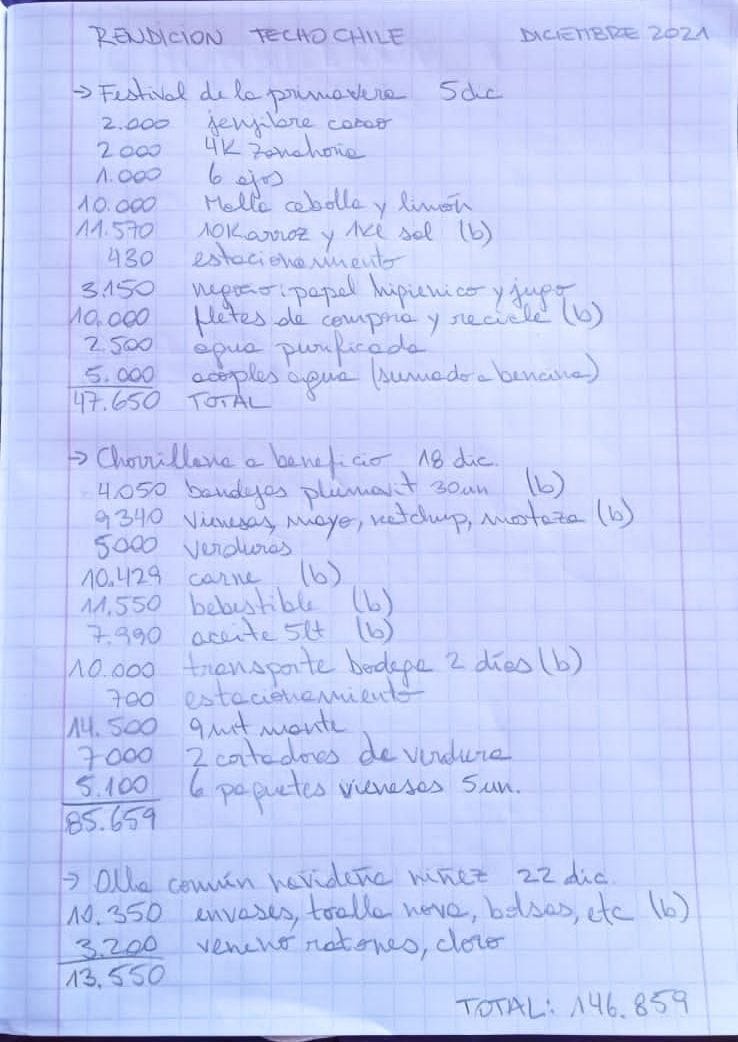 RENDICION TECHO CHILE DICIEMBRE 2021
→ Festival de la primavera 5 dic
2.000 jenjibre cacao
2000 4K zanahoria
1.000 6 ajos
10.000 Malla cebolla y limón
11.570 10K arroz y 1Kl sal (b)
430 estacionamiento
3.150 negocio: papel higienico y jugo
10.000 fletes de compra y recicle (b)
2.500 agua purificada
5.000 acoples agua (sumado a bencina)
47.650 TOTAL
→ Chorrillana a beneficio 18 dic.
4.050 bandejas plumavit 30un (b)
9340 vienesas, mayo, ketchup, mostaza (b)
5000 verduras
10.429 carne (b)
11.550 bebestible (b)
7.990 aceite 5lt (b)
10.000 transporte bodega 2 días (b)
700 estacionamiento
14.500 9 mt
7000 2 cortadores de verdura
5.100 6 paquetes vienesas 5un.
85.659
→ Olla común navideña niñez 22 dic.
10.350 envases, toalla nova, bolsas, etc (b)
3.200 veneno ratones, cloro
13.550
TOTAL: 146.859